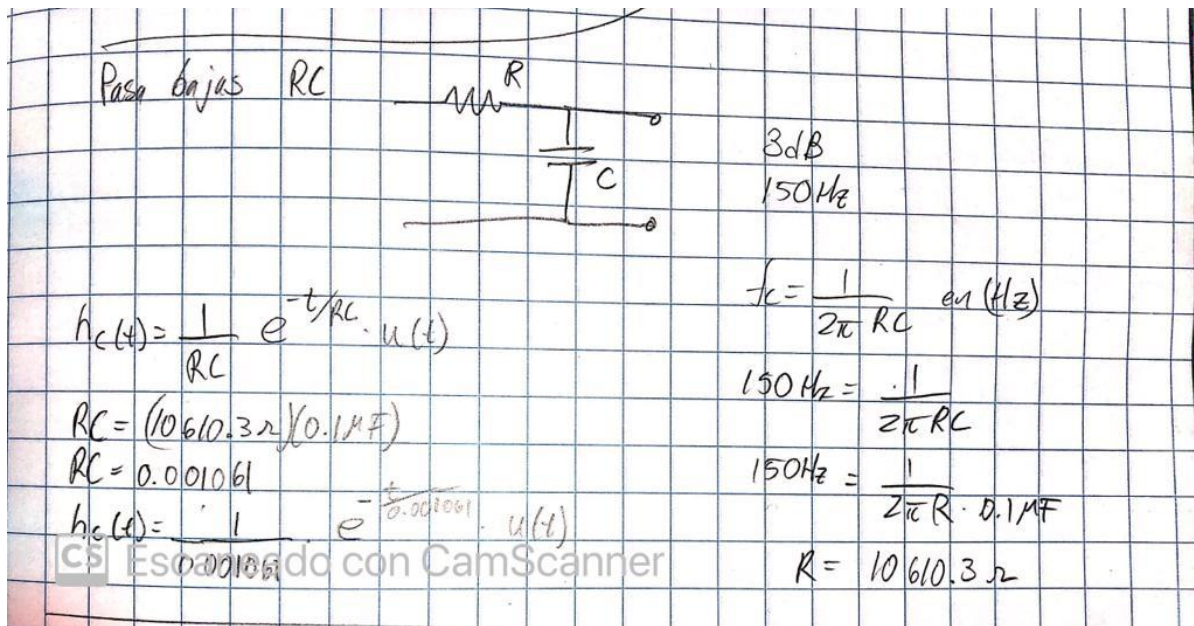 Pasa bajas RC
R
C
3dB
150Hz
hc(t) = 1/RC e^-t/RC · u(t)
RC = (10610.3Ω)(0.1μF)
RC = 0.001061
hc(t) = 1/0.001061 · e^-t/0.001061 · u(t)
fc = 1/2π RC en (Hz)
150Hz = 1/2π RC
150Hz = 1/2π R · 0.1μF
R = 10610.3Ω
CS Escaneado con CamScanner